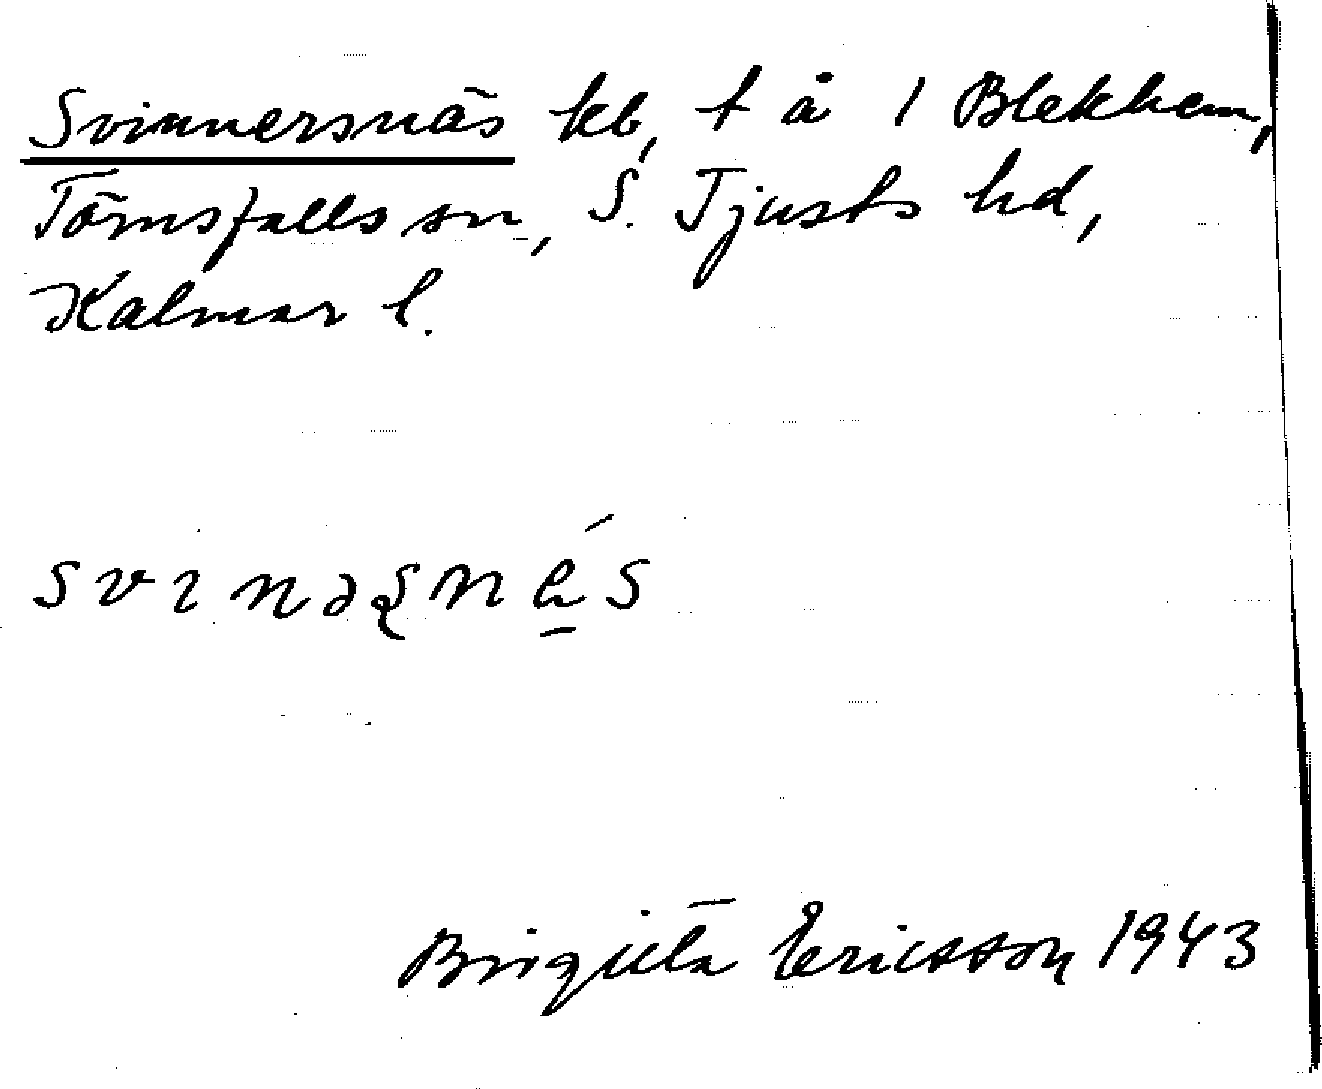 Svinnersnäs kb, t å 1 Blekhem,
Törnsfalls sn, S. Tjusts hd,
Kalmar l.
Birgitta Ericsson 1943